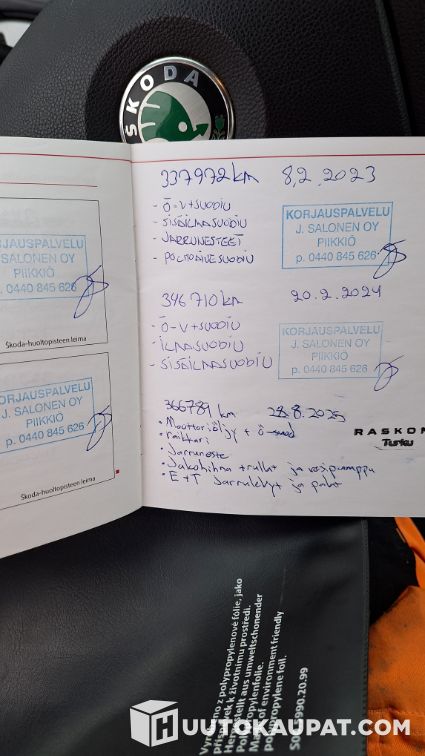 ŠKODA
337972 km 8.2.2023
- Ö-V+SUODIN
- SISÄILMASUODIN
- JARRUNESTEET
- POLTTOAINESUODIN
KORJAUSPALVELU
J. SALONEN OY
PIIKKIÖ
p. 0440 845 626
346710 km 20.2.2024
- Ö-V+SUODIN
- ILMASUODIN
- SISÄILMASUODIN
KORJAUSPALVELU
J. SALONEN OY
PIIKKIÖ
p. 0440 845 626
366789 km 28.8.2025
• Moottoriöljy + ö-suod
• raitisi
• Jarruneste
• Jakohihna + rullat ja vesipumppu
• E+T Jarrulevyt ja palat
RASKON
Turku
RJAUSPALVELU
SALONEN OY
PIIKKIÖ
0440 845 626
Škoda-huoltopisteen leima
KORJAUSPALVELU
J. SALONEN OY
PIIKKIÖ
p. 0440 845 626
Škoda-huoltopisteen leima
no z polypropylenové fólie, jako
k životnímu prostředí.
aus umweltschonender
of environment friendly
foil.
990.20.99
HUUTOKAUPAT.COM